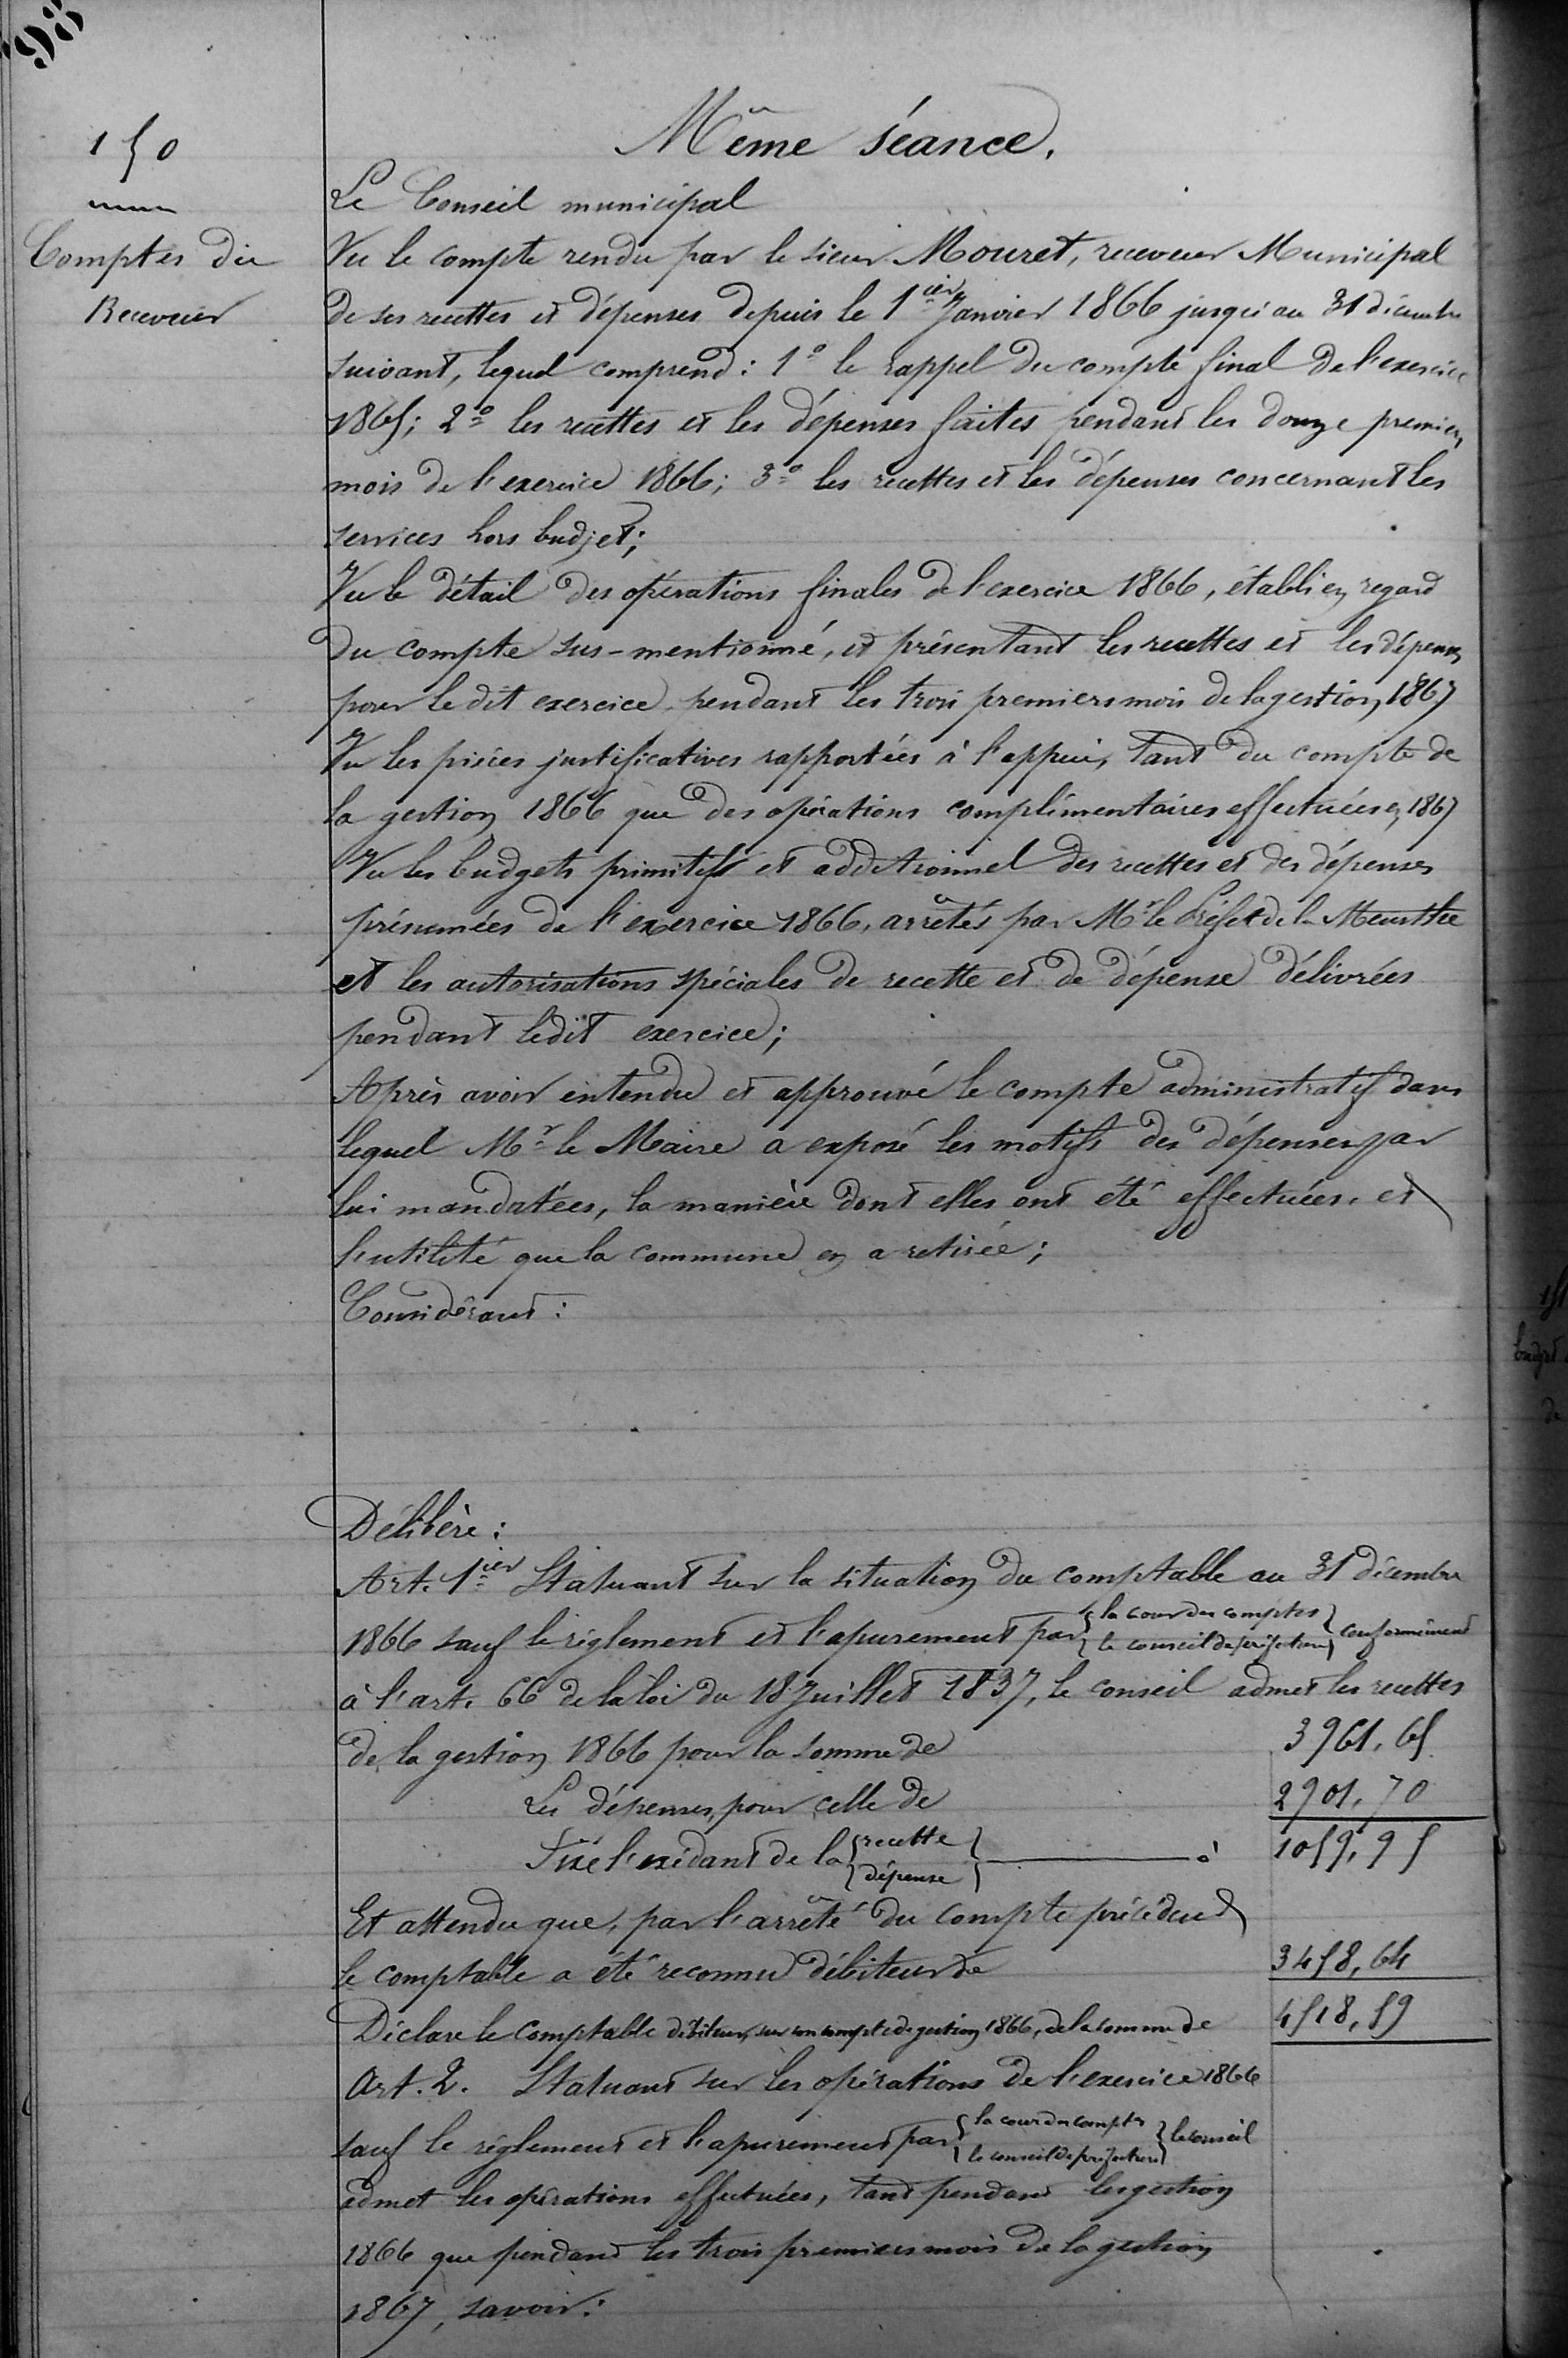 98
150
Comptes du
Receveur
Même séance.
Le Conseil municipal
Vu le compte rendu par le sieur Mouret, receveur Municipal
de ses recettes et dépenses depuis le 1ier Janvier 1866 jusqu'au 31 décembre
suivant, lequel comprend : 1° le rappel du compte final de l'exercice
1865; 2° les recettes et les dépenses faites pendant les douze premiers
mois de l'exercice 1866; 3° les recettes et les dépenses concernant les
services hors budjet;
Vu le détail des opérations finales de l'exercice 1866, établi en regard
du compte sus-mentionné, et présentant les recettes et les dépenses
pour le dit exercice pendant les trois premiers mois de la gestion 1867
Vu les pièces justificatives rapportées à l'appui, tant du compte de
la gestion 1866 que des opérations complémentaires effectuées en 1867
Vu les budgets primitifs et additionnel des recettes et des dépenses
présumées de l'exercice 1866, arrêtés par Mr le Préfet de la Meurthe
et les autorisations spéciales de recette et de dépense délivrées
pendant ledit exercice;
Après avoir entendu et approuvé le compte administratif dans
lequel Mr le Maire a exposé les motifs des dépenses par
lui mandatées, la manière dont elles ont été effectuées, et
l'utilité que la commune en a retirée;
Considérant :
Délibère :
Art. 1ier Statuant sur la situation du comptable au 31 décembre
1866 sauf le règlement et l'apurement par { la cour des comptes / le conseil de préfecture } conformément
à l'art. 66 de la loi du 18 Juillet 1837, le conseil admet les recettes
de la gestion 1866 pour la somme de 3961,65
Les dépenses, pour celle de 2901,70
Fixe l'exédant de la { recette / dépense } à 1059,95
Et attendu que, par l'arrêté du compte précédent
le comptable a été reconnu débiteur de 3458,64
Déclare le comptable débiteur, sur son compte de gestion 1866, de la somme de 4518,59
Art. 2. Statuant sur les opérations de l'exercice 1866
sauf le règlement et l'apurement par { la cour des comptes / le conseil de préfecture } le conseil
admet les opérations effectuées, tant pendant les gestion
1866 que pendant les trois premiers mois de la gestion
1867, savoir :